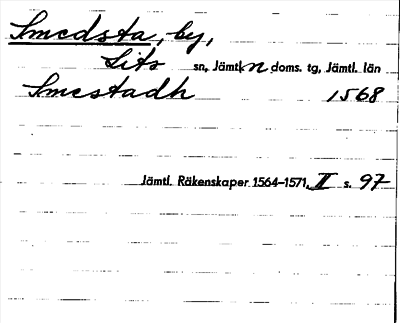 Smedsta, by,
Lits sn, Jämtl. n doms. tg, Jämtl. län
Smestadh 1568
Jämtl. Räkenskaper 1564–1571, II s. 97